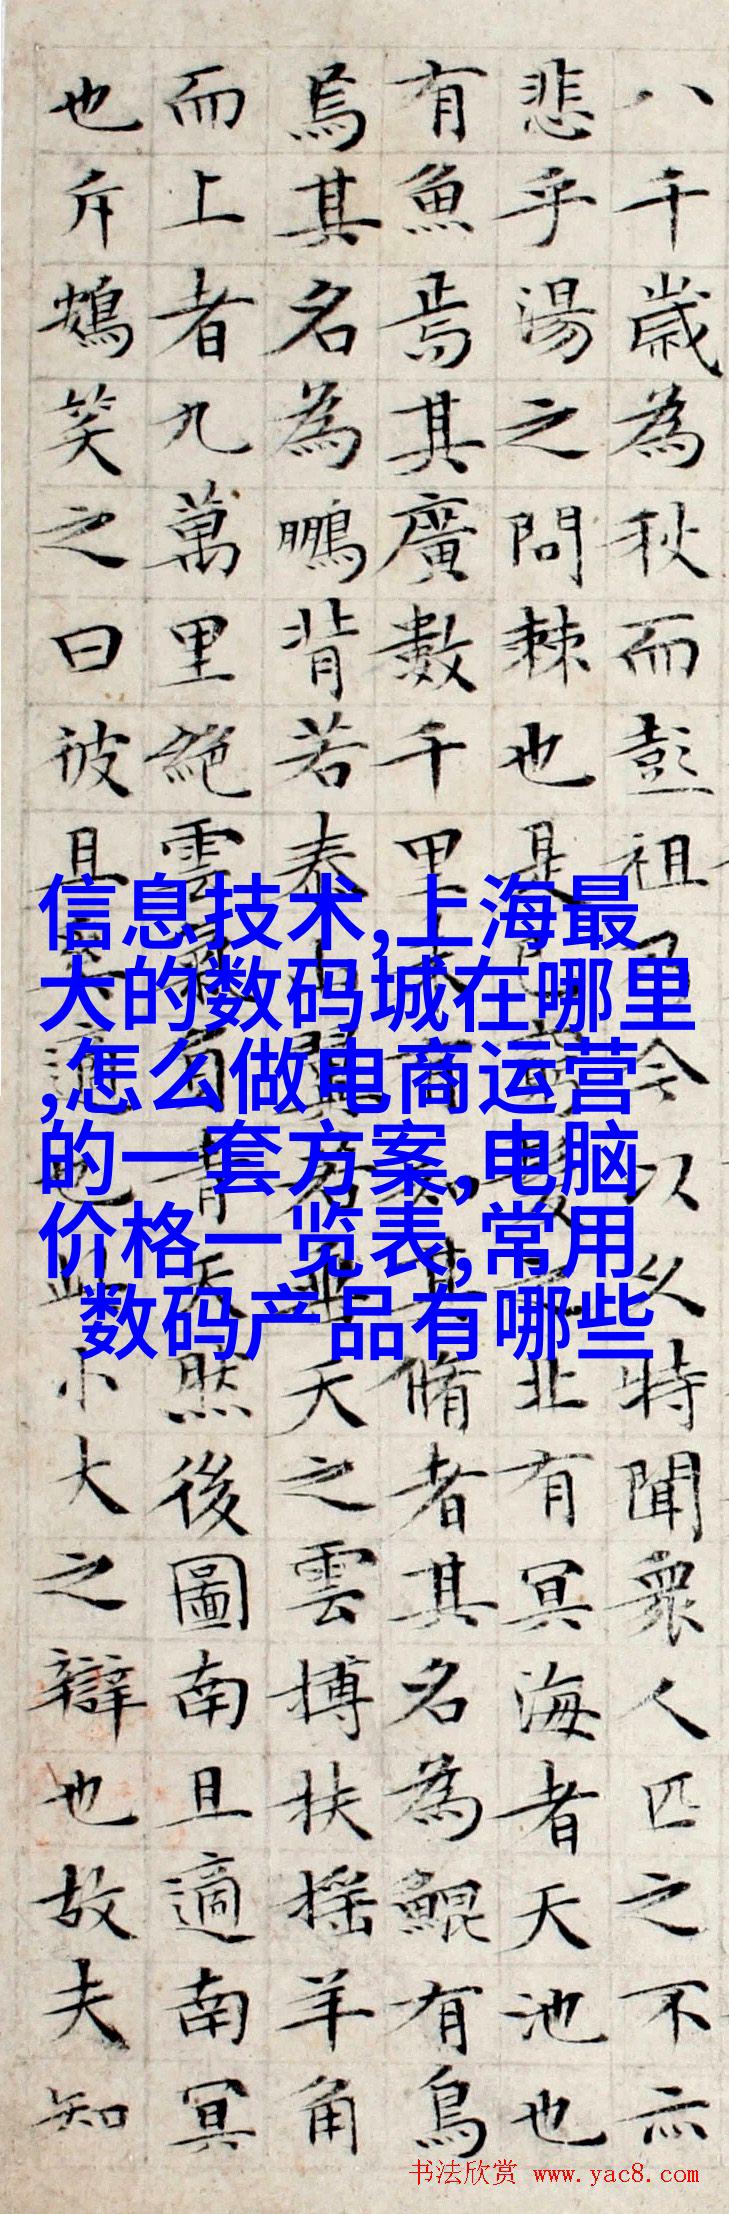 八千歲為秋而彭祖乃今以久特聞衆人匹之不亦
悲乎湯之問棘也是已窮髮之北有冥海者天池也
有魚焉其廣數千里未有知其脩者其名為鯤有鳥
焉其名為鵬背若泰山翼若垂天之雲搏扶搖羊角
而上者九萬里絕雲氣負青天然後圖南且適南冥
也斥鴳笑之曰彼且奚適也此小大之辯也故夫知
信息技术,上海最
大的数码城在哪里
,怎么做电商运营
的一套方案,电脑
价格一览表,常用
数码产品有哪些
书法欣赏 www.yac8.com